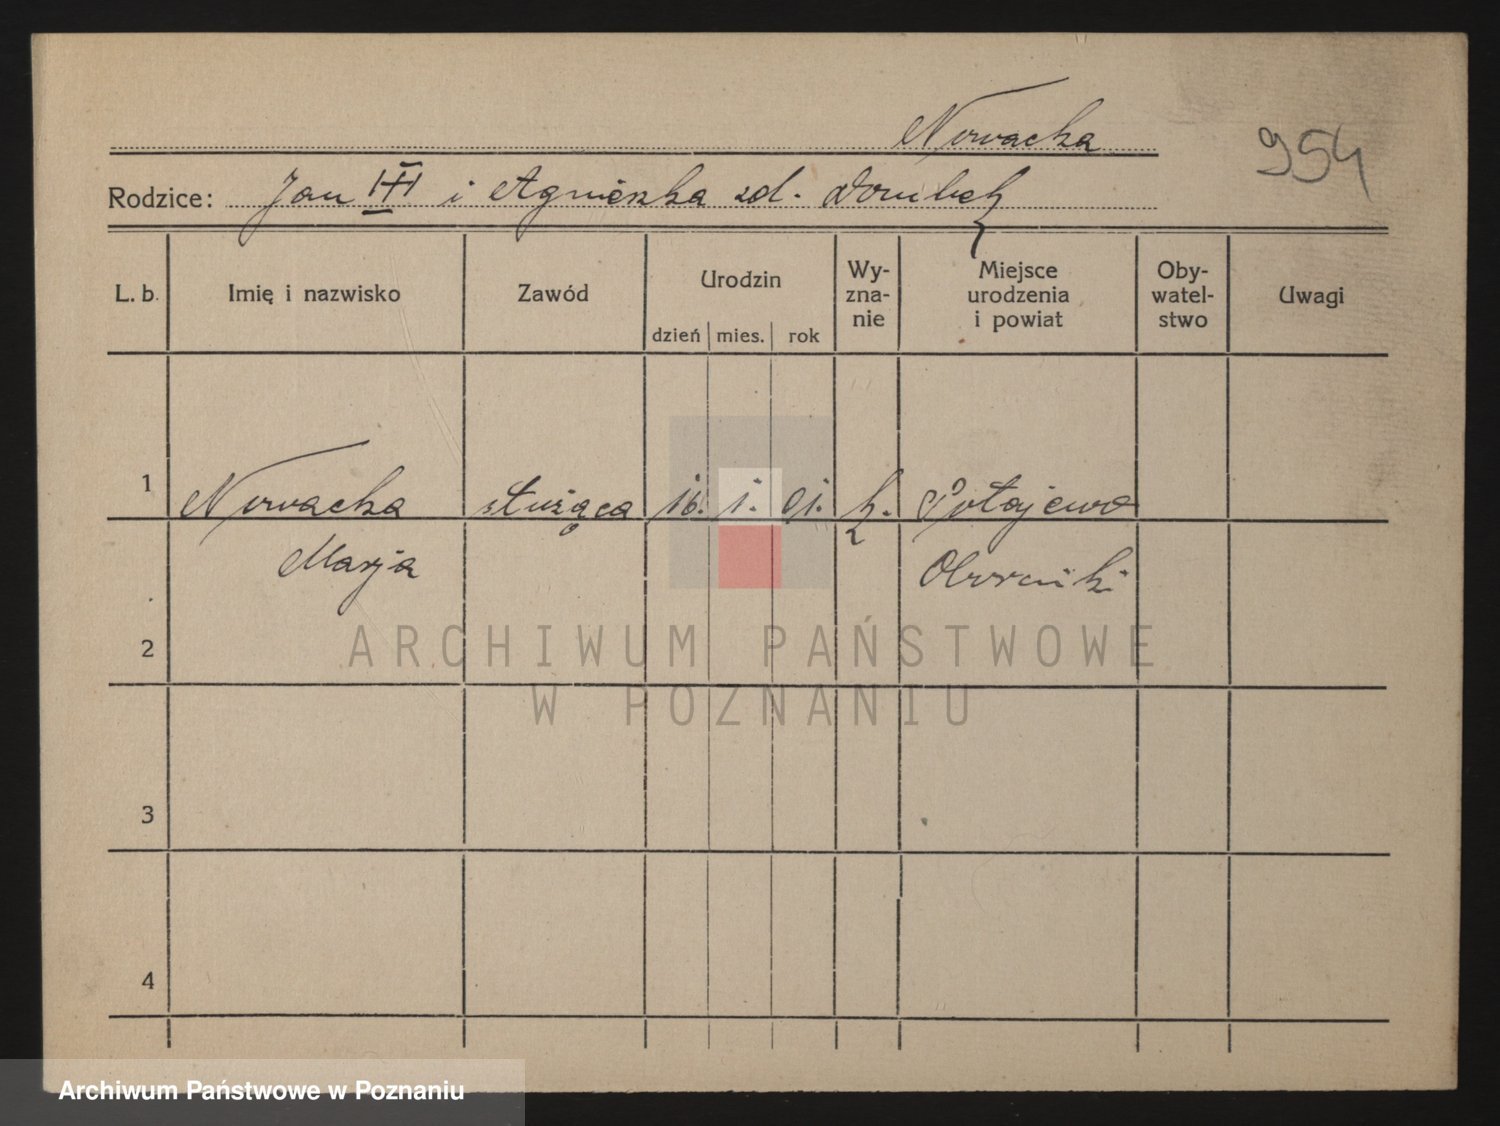 Nowacka
954
Rodzice: Jan i Agnieszka zd.
L. b. Imię i nazwisko Zawód Urodzin dzień mies. rok Wy-zna-nie Miejsce urodzenia i powiat Oby-watel-stwo Uwagi
1 Nowacka służąca 16. 1. 01. k. Połajewo
Marja Oborniki
2
ARCHIWUM PAŃSTWOWE
W POZNANIU
3
4
Archiwum Państwowe w Poznaniu